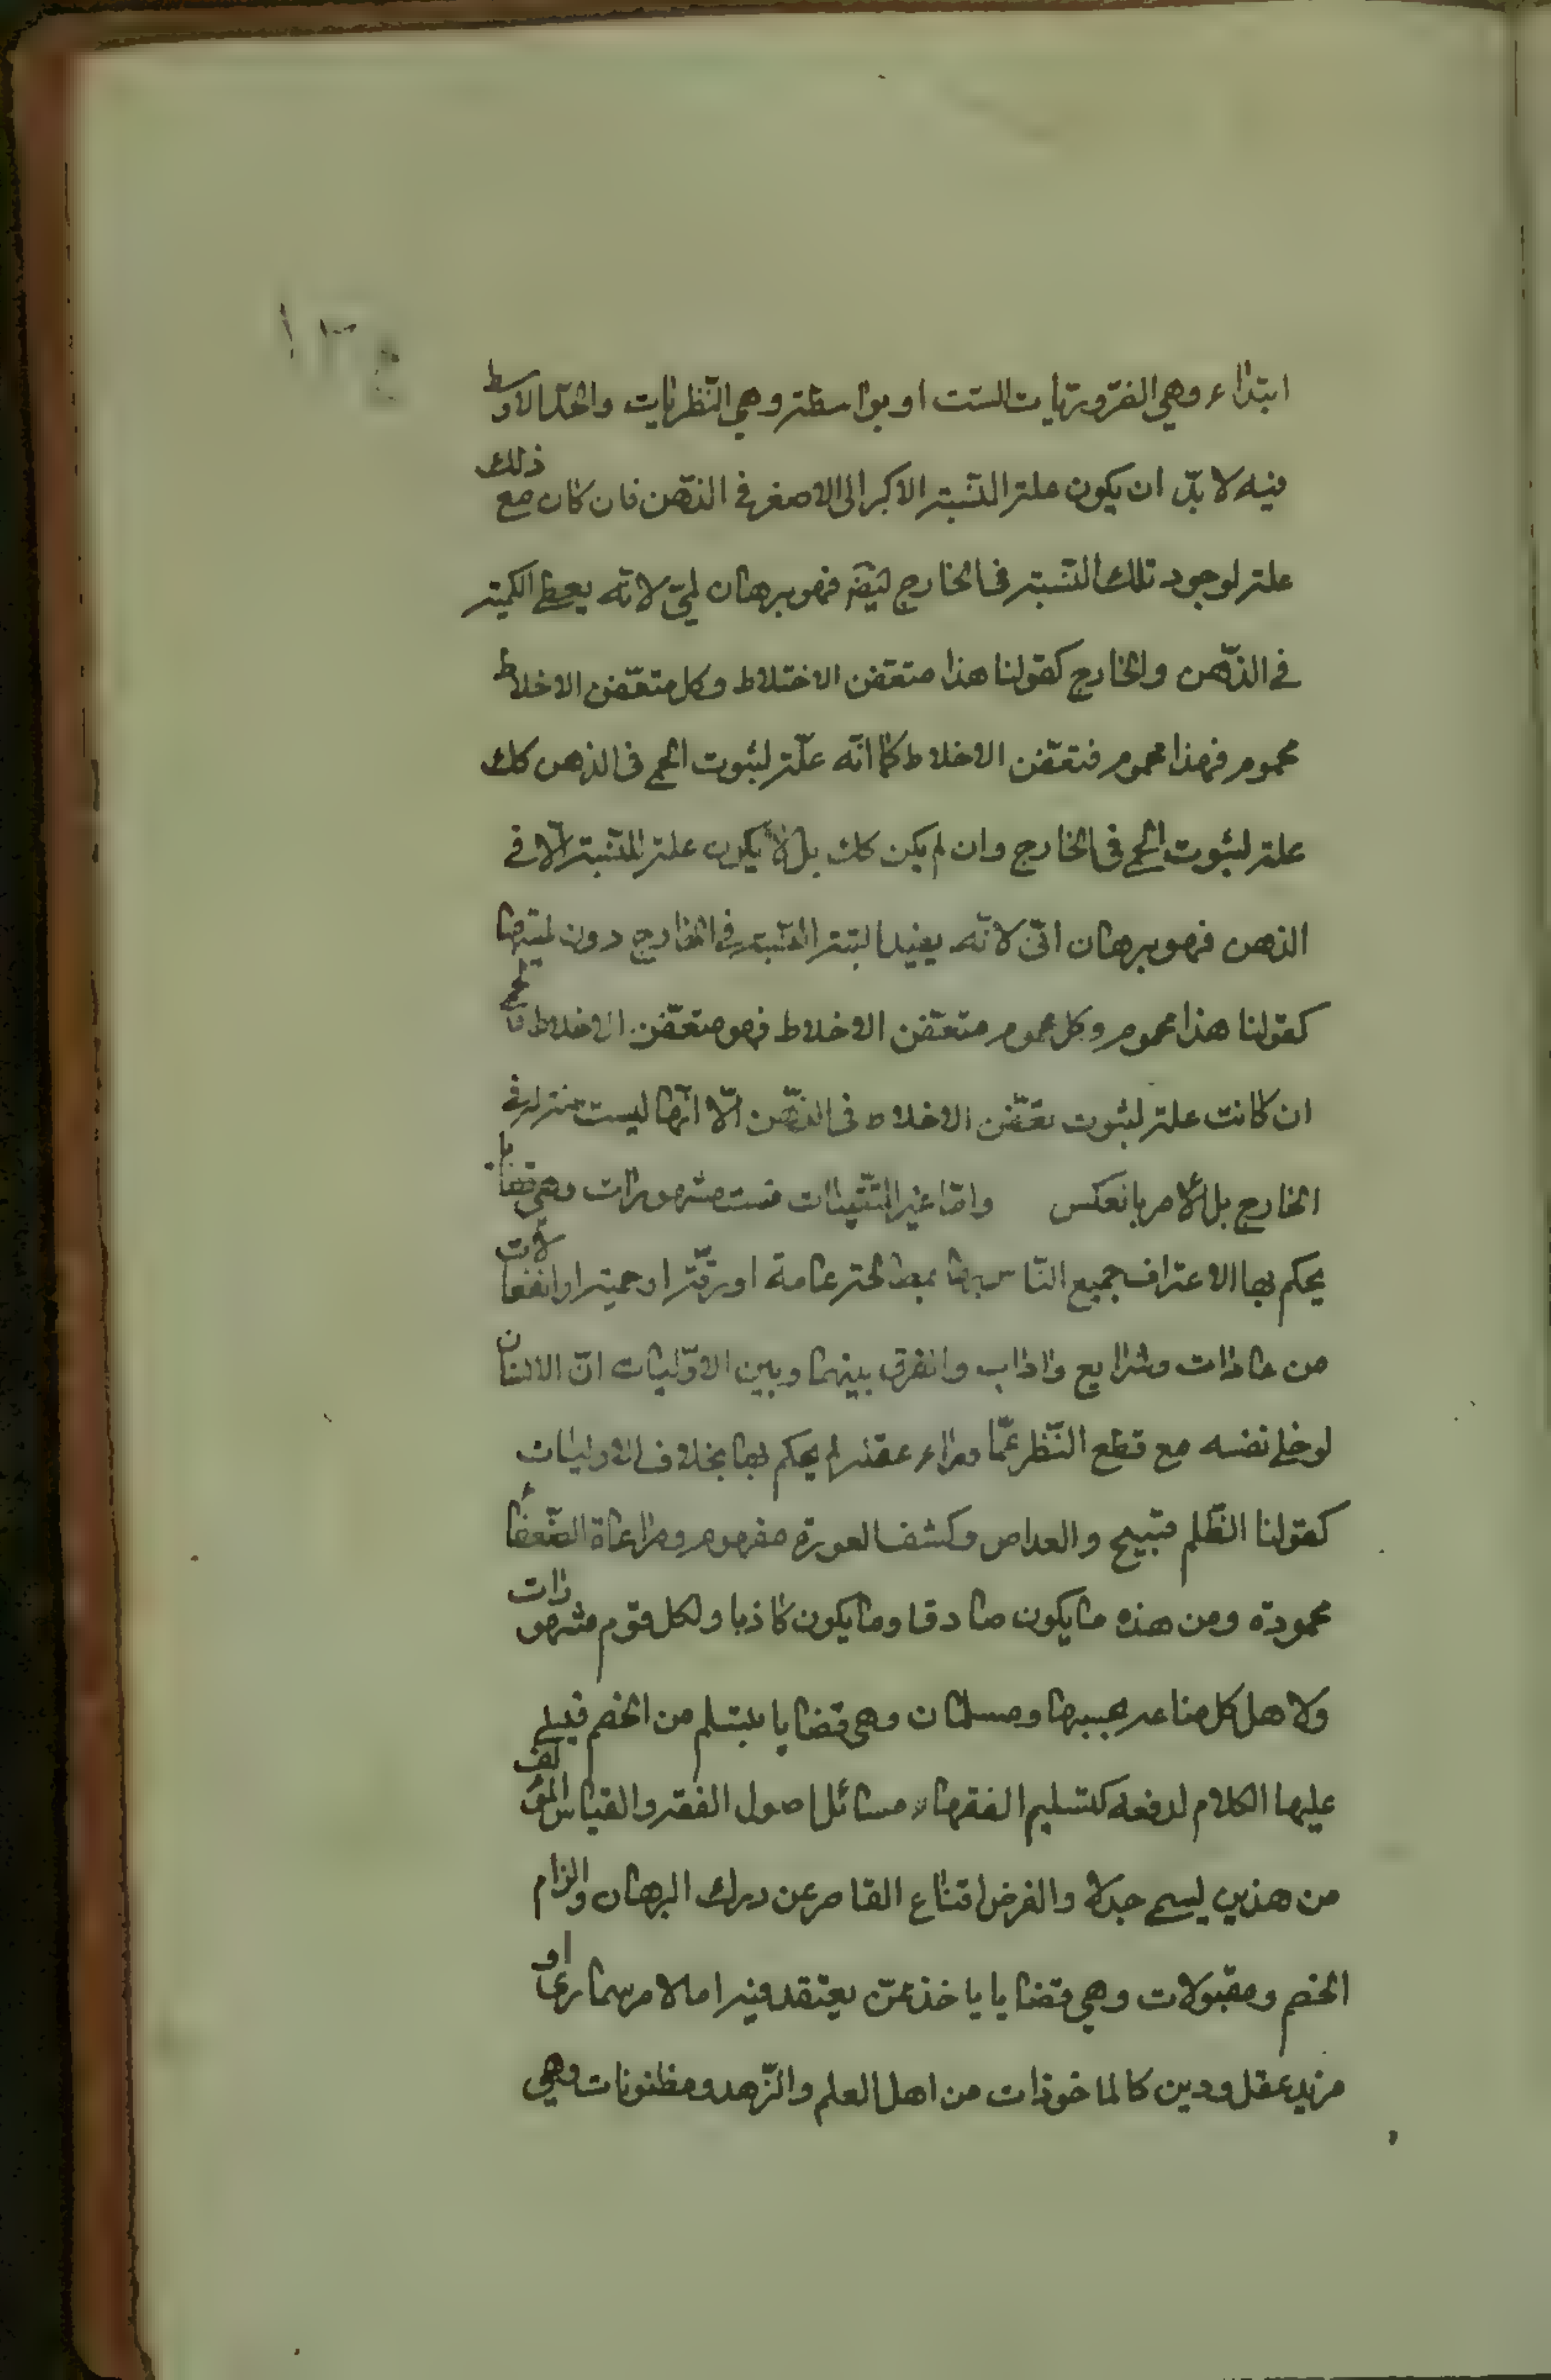 ابتداء وهي الضروريات الست او بواسطة وهي النظريات والحد الاوسط
فيه لا بدّ ان يكون علة لنسبة الاكبر الى الاصغر في الذهن فان كان مع ذلك
علة لوجود تلك النسبة في الخارج ايضا فهو برهان لمّي لانه يعطي اللمية
في الذّهن والخارج كقولنا هذا متعفن الاختلاط وكل متعفّن الاخلاط
محموم فهذا محموم فتعفّن الاخلاط كما انّه علّة لثبوت الحمى في الذهن كك
علة لثبوت الحمى في الخارج وان لم يكن كك بل لا يكون علة للنسبة الّا في
الذهن فهو برهان انّي لانّه يفيد انية النسبة في الخارج دون لميتها
كقولنا هذا محموم وكل محموم متعفن الاخلاط فهو متعفّن الاخلاط فالحمى
ان كانت علة لثبوت تعفّن الاخلاط في الذّهن الّا انّها ليست علة له في
الخارج بل الامر بالعكس وامّا غير اليقينيات فست مشهورات وهي قضايا
يحكم بها لاعتراف جميع النّاس بها لمصلحة عامة او رقّة او حمية او انفعالات
من عادات وشرايع واداب والفرق بينها وبين الاوّليات انّ الانسان
لو خلي نفسه مع قطع النّظر عمّا وراء عقله لم يحكم بها بخلاف الاوليات
كقولنا الظّلم قبيح والعدل حسن وكشف العورة مذموم ومراعاة الضّعفاء
محمودة ومن هذه ما يكون صادقا وما يكون كاذبا ولكل قوم مشهورات
ولاهل كل صناعة بحسبها ومسلمات وهي قضايا يتسلم من الخصم فيبنى
عليها الكلام لدفعه كتسليم الفقهاء مسائل اصول الفقه والقياس المؤلف
من هذين يسمى جدلا والغرض اقناع القاصر عن درك البرهان والزام
الخصم ومقبولات وهي قضايا ياخذ عمّن يعتقد فيه امالا مر سماوي او
مزيد عقل ودين كالماخوذات من اهل العلم والزّهد ومظنونات وهي